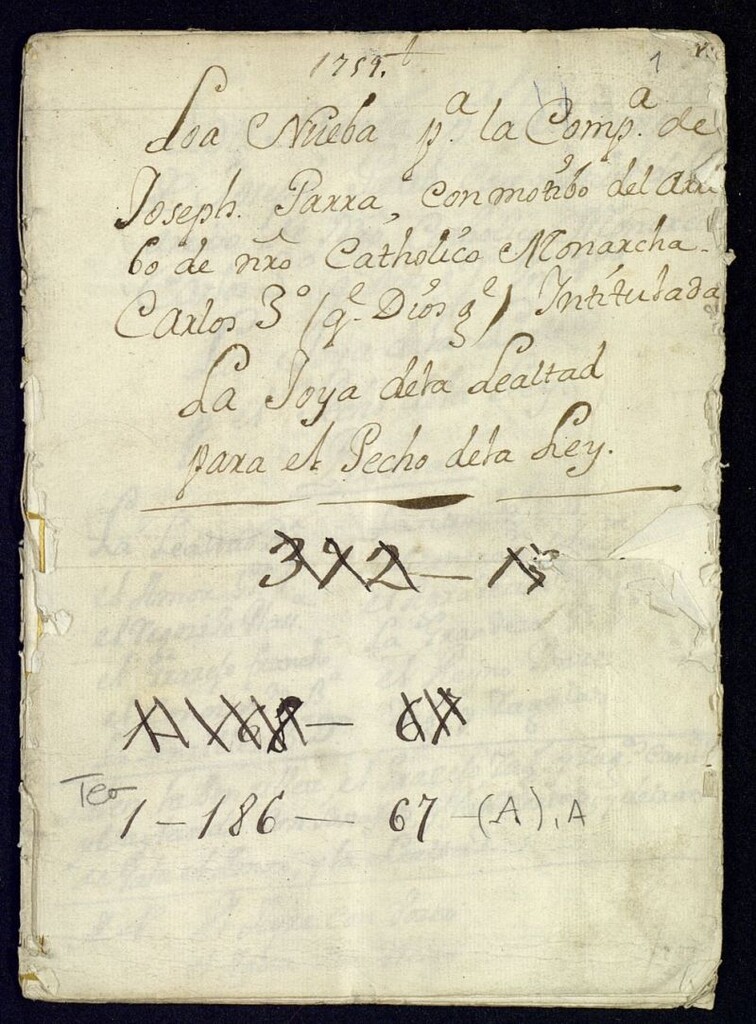 1759.
1
Loa Nueba p.ª la Comp.ª de
Joseph. Parra, con motibo del Arri
bo de nrõ Catholico Monarcha
Carlos 3º (q.e Dios g.e) Intitulada
La Joya dela Lealtad
para el Pecho dela Ley.
372 —
68 — 67
Tea
1 – 186 – 67 – (A), A